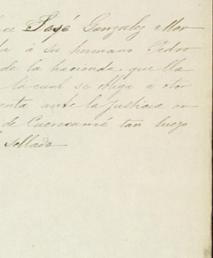 José Gonzalez Mor
á su hermano Pedro
de la hacienda que lla
la cual se obliga a otor
enta ante la justicia or
de Cuencamé tan luego
sellado